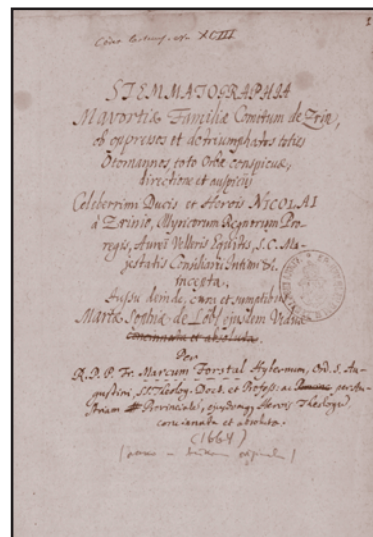 1
XCIII
STEMMATOGRAPHIA
Mavortiæ Familiæ Comitum de Zrin,
ob oppressos et detriumphatos toties
Otomannos, toto Orbe conspicuæ,
directione et auspicijs
Celeberrimi Ducis et Herois NICOLAI
à Zrinio, Illyricorum Regnorum Pro-
regis, Aurei Velleris Equitis, S.C. Ma-
jestatis Consiliarii Intimi &c.
incepta.
Jussu deinde, cura et sumptibus
Mariæ Sophiæ de Löbl ejusdem Viduæ
concinnata et absoluta.
Per
R. P. Fr. Marcum Forstal Hybernum, Ord. S. Au-
gustini, SS. Theolog. Doct. et Profess. ac per Au-
striam Provincialem, ejusdemq; Herois Theologum
concinnata et absoluta.
(1664)